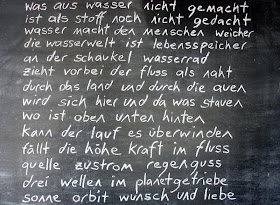 was aus wasser nicht gemacht
ist als stoff noch nicht gedacht
wasser macht den menschen weicher
die wasserwelt ist lebensspeicher
an der schaukel wasserrad
zieht vorbei der fluss als naht
durch das land und durch die auen
wird sich hier und da was stauen
wo ist oben unten hinten
kann der lauf es überwinden
fällt die höhe kraft im fluss
quelle zustrom regenguss
drei wellen im planetgetriebe
sonne orbit wunsch und liebe